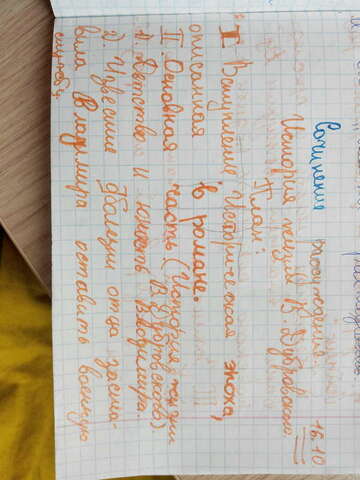 16.10
Сочинение
История жизни В. Дубровского.
План:
I Вступление Историческая эпоха,
описанная в романе.
II. Основная часть (История жизни
В. Дубровского).
1. Детство и юность Владимира.
2. Известие болезни отца заста-
вила Владимира оставить военную
службу.